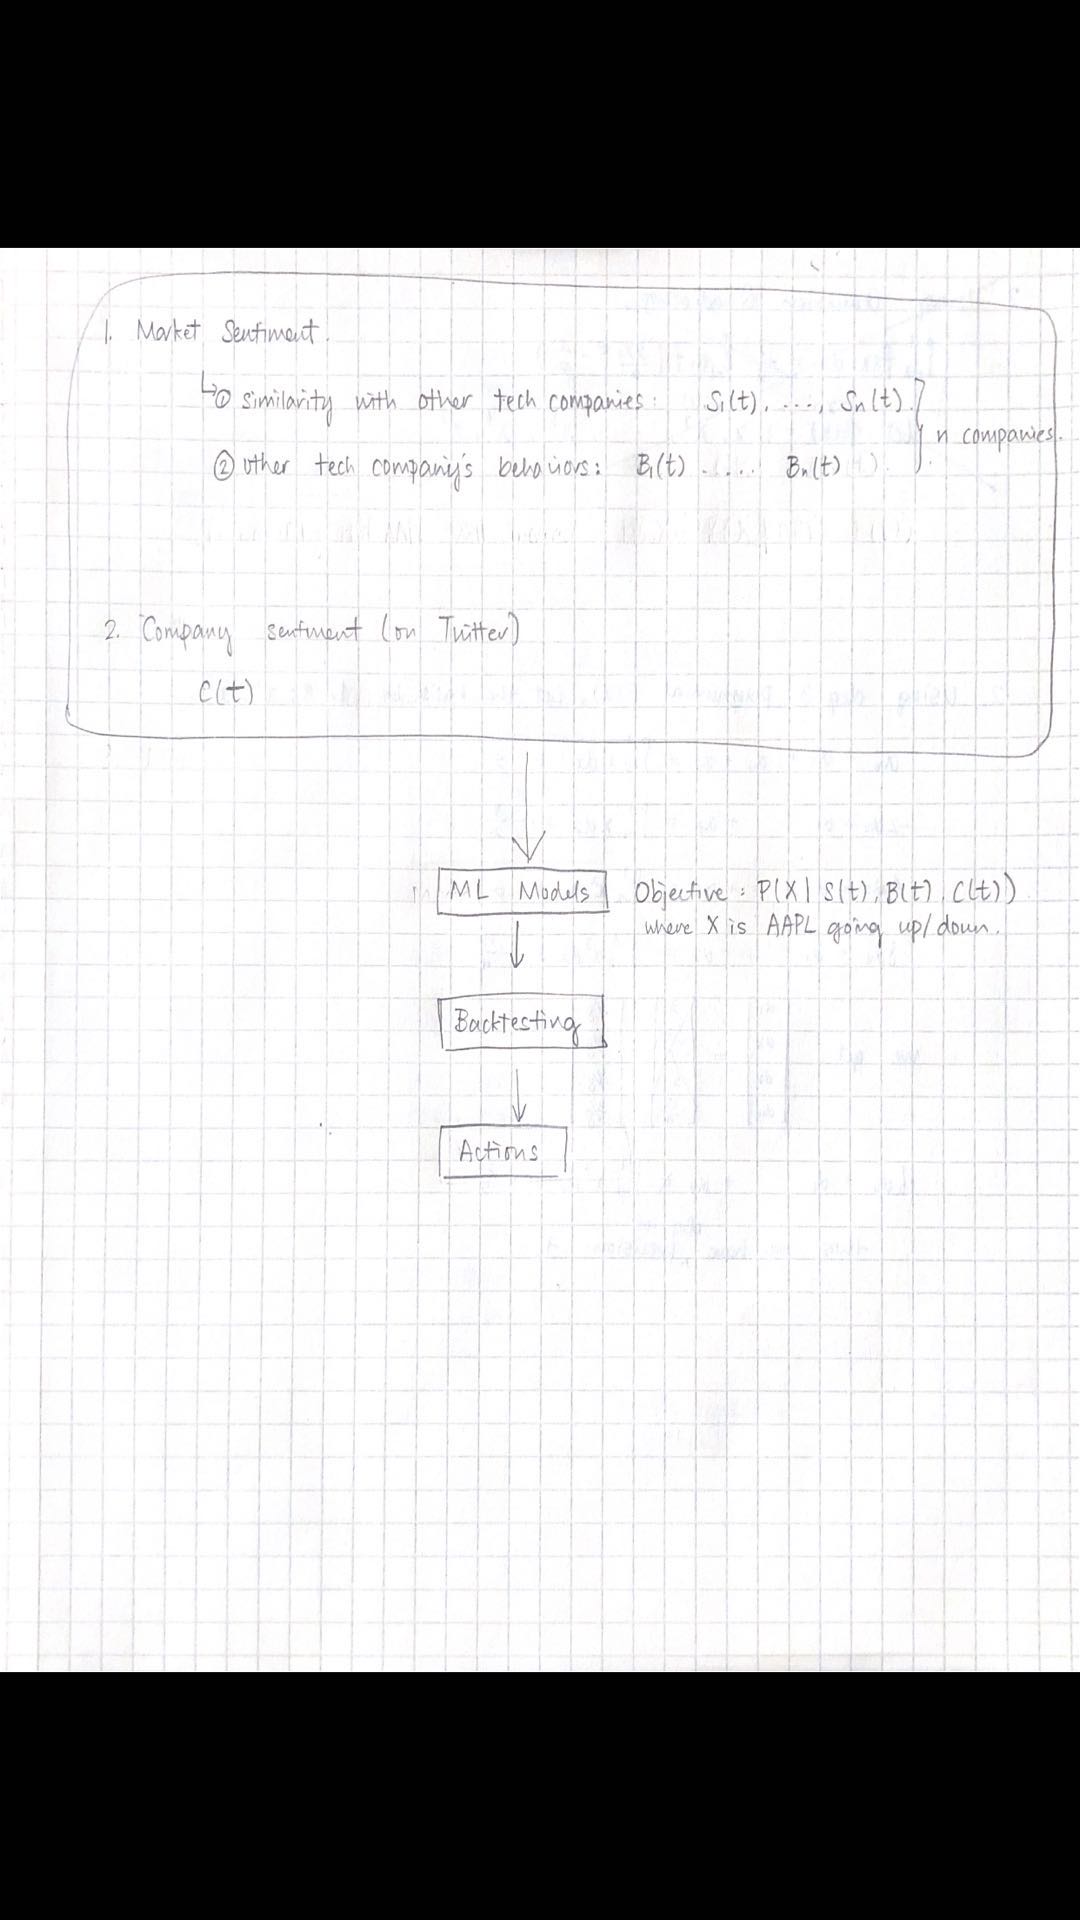 1. Market Sentiment.
① similarity with other tech companies: S₁(t), ...., Sₙ(t).
② other tech company's behaviors: B₁(t) ..... Bₙ(t)
} n companies.
2. Company sentiment (on Twitter)
C(t)
ML Models Objective: P(X | S(t), B(t), C(t))
where X is AAPL going up/down.
Backtesting
Actions